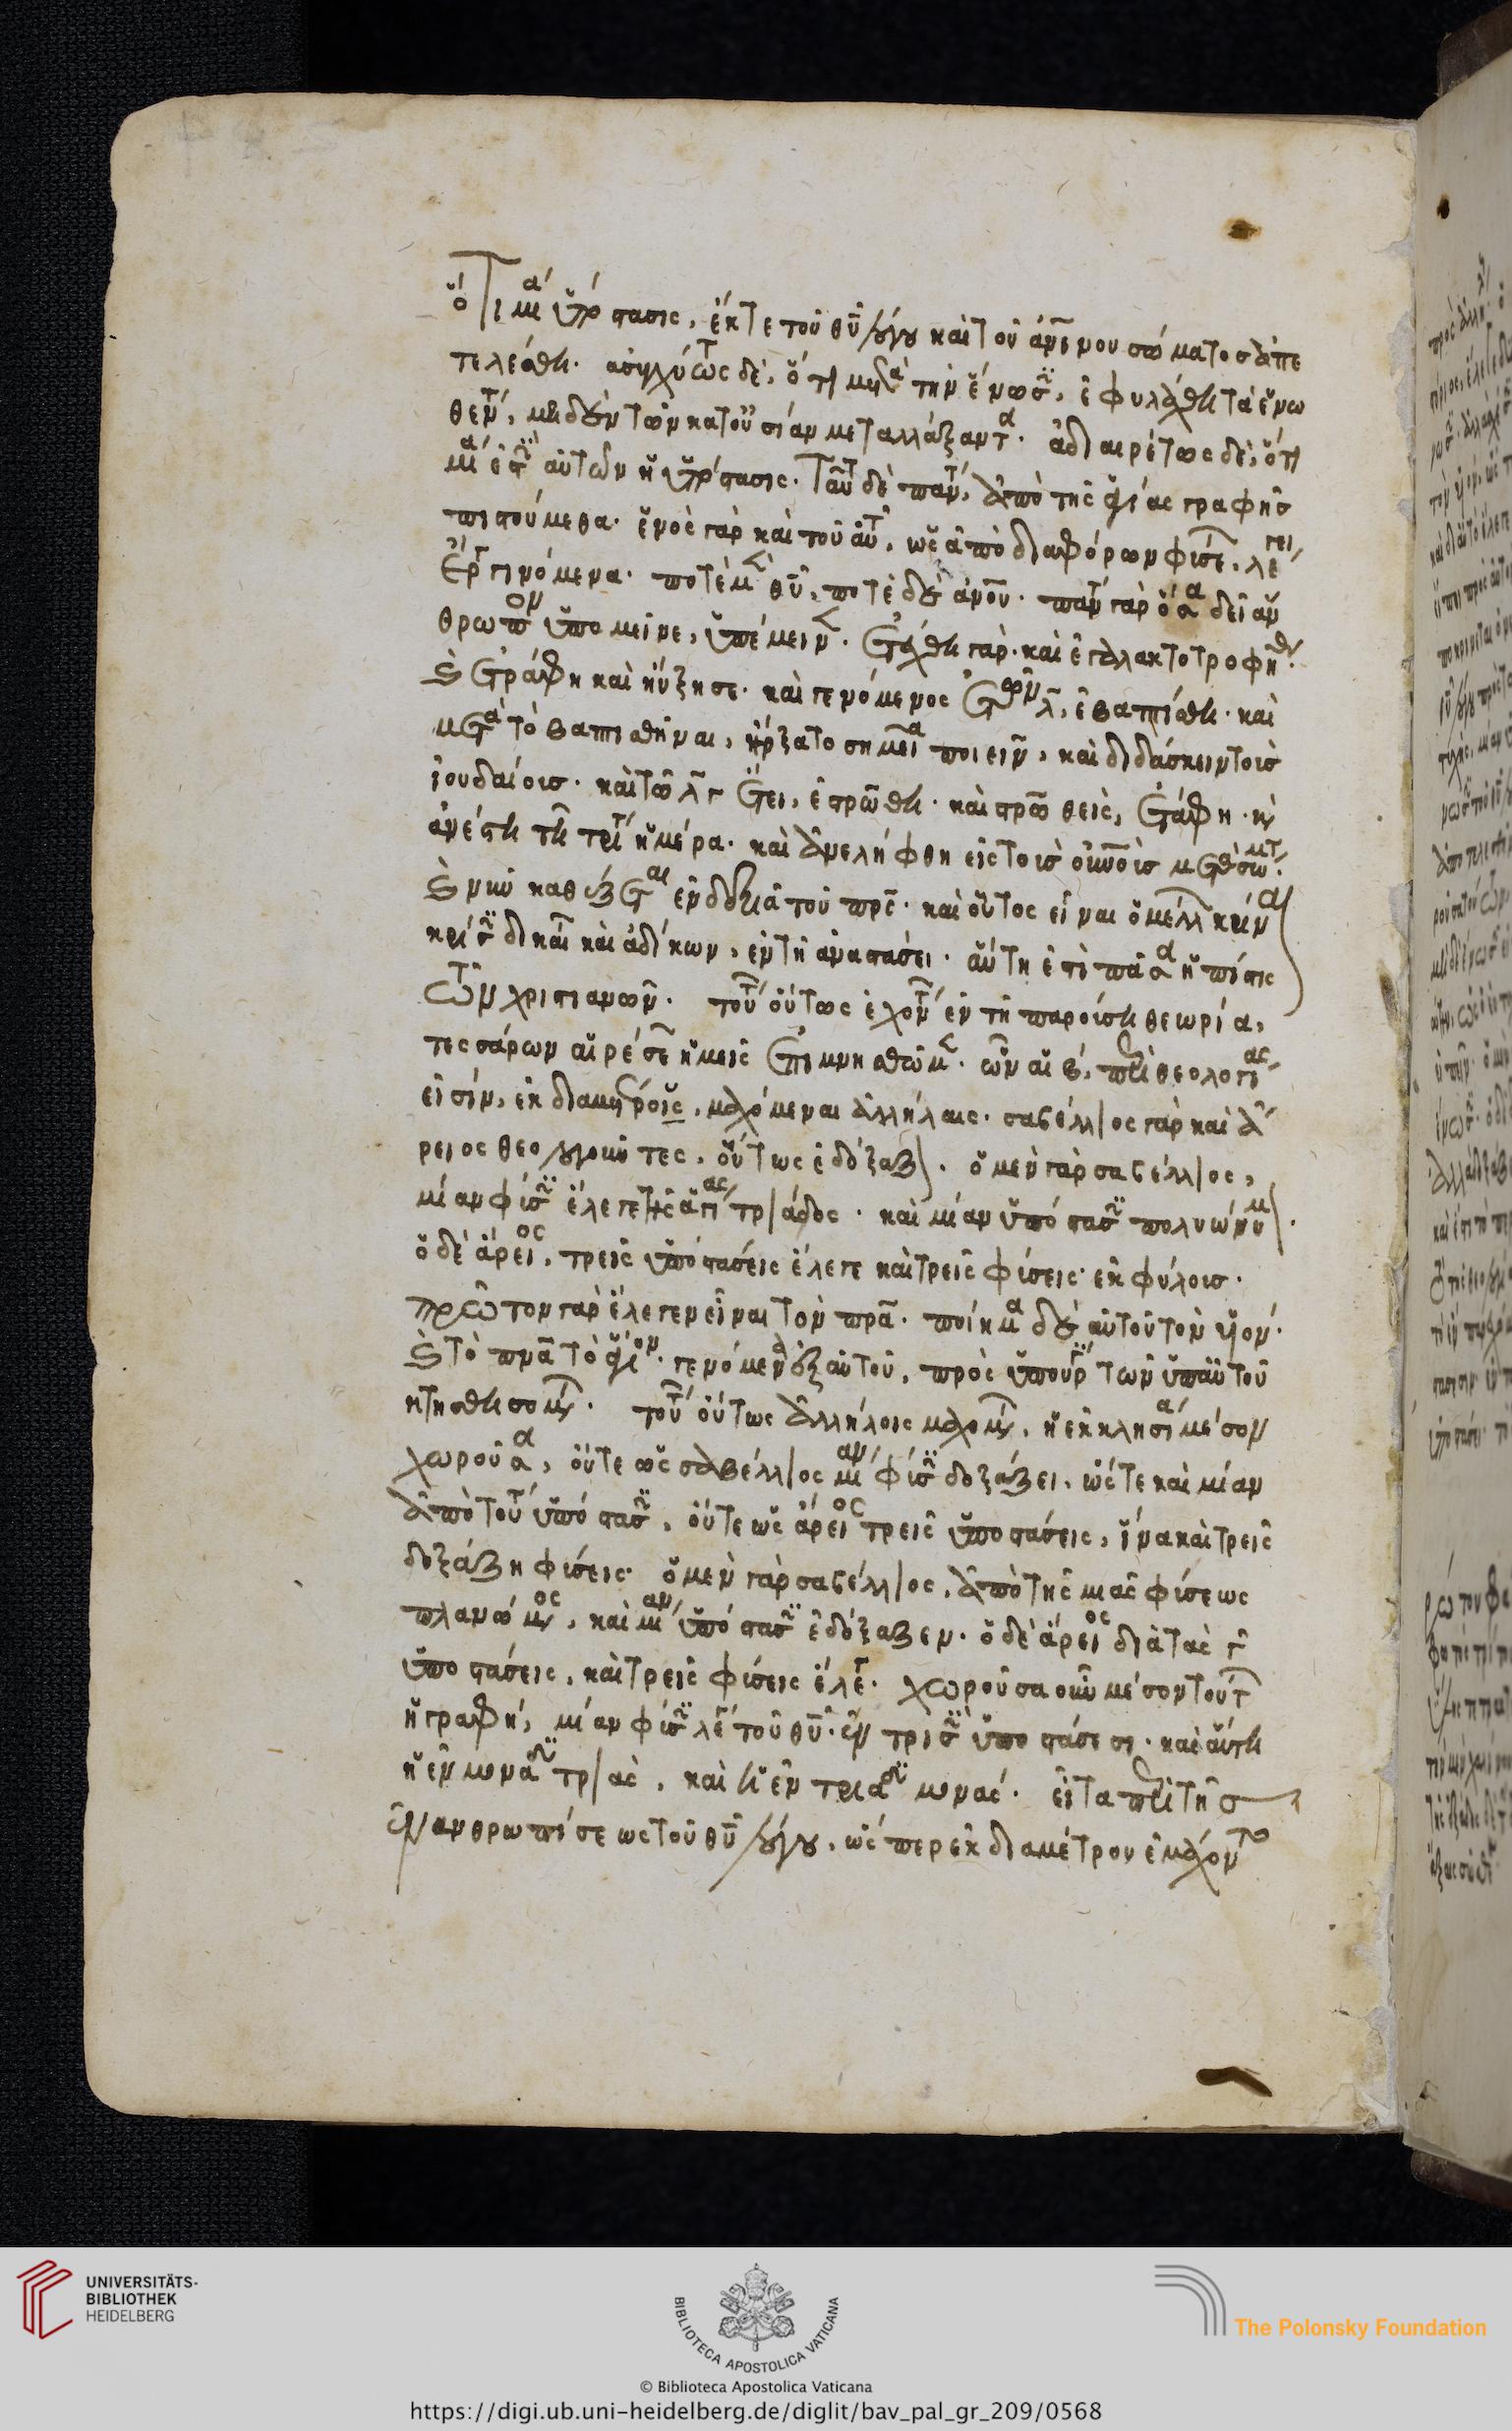 ὅτι μία ὑπόστασις, ἔκ τε τοῦ θυ λόγου καὶ τοῦ ἀνίνου σώματος ἀπε
τελέσθη. ἀσυγχύτως δὲ, ὅτι μετὰ τὴν ἕνωσιν, ἐφυλάχθη τὰ ἑνω
θέντα, μηδὲν τῶν κατουσίαν μεταλλάξαντα. ἀδιαιρέτως δὲ, ὅτι
μία ἐστὶν αὐτῶν ἡ ὑπόστασις. ταῦτα δὲ πάντα, ἀπὸ τῆς θείας γραφῆς
πιστούμεθα. ἑνὸς γὰρ καὶ τοῦ αὐτοῦ, ὡς ἀπὸ διαφόρων φύσεων, λέγει
ἔργα γινόμενα. ποτὲ μὲν θυ, ποτὲ δὲ ἀνου. πάντα γὰρ ὅσα δεῖ ἄν
θρωπον ὑπομεῖναι, ὑπέμεινεν. ἐτέχθη γὰρ. καὶ ἐγαλακτοτροφήθη.
καὶ ἐτράφη καὶ ηὔξησε. καὶ γενόμενος ἐτῶν λ, ἐβαπτίσθη. καὶ
μετὰ τὸ βαπτισθῆναι, ἤρξατο σημεῖα ποιεῖν, καὶ διδάσκειν τοῖς
ἰουδαίοις. καὶ τῶ λγ ἔτει, ἐστρώθη. καὶ στρωθεὶς, ἐτάφη. καὶ
ἀνέστη τῆ τρίτη ἡμέρα. καὶ ἀνελήφθη εἰς τοὺς οὐνοὺς μετὰ σώματος.
καὶ νῦν καθέζεται ἐν δεξιᾶ τοῦ πρς. καὶ οὗτος εἶναι ὁ μέλλων κρίναι
κρίσιν δικαίων καὶ ἀδίκων, ἐν τῆ ἀναστάσει. αὕτη ἐστὶ πᾶσα ἡ πίστις
τῶν χριστιανῶν. τούτων οὕτως ἐχόντων ἐν τῆ παρούση θεωρία,
τεσσάρων αἱρέσεων ἡμεῖς ἐπιμνησθῶμεν. ὧν αἱ β, περὶ θεολογίας
εἰσίν, ἐκ διαμέτρου, μαχόμεναι ἀλλήλαις. σαβέλλιος γὰρ καὶ ἄ
ρειος θεολογοῦντες, οὕτως ἐδόξαζον. ὁ μὲν γὰρ σαβέλλιος,
μίαν φύσιν ἔλεγε τῆς ἁγίας τριάδος. καὶ μίαν ὑπόστασιν πολυώνυμον.
ὁ δὲ ἄρειος, τρεῖς ὑποστάσεις ἔλεγε καὶ τρεῖς φύσεις ἐκφύλοις.
πρῶτον γὰρ ἔλεγεν εἶναι τὸν πρα. ποίημα δὲ αὐτοῦ τὸν υἱον.
καὶ τὸ πνα τὸ ἅγιον. γενόμενα ἐξ αὐτοῦ, πρὸς ὑπουργίαν τῶν ὑπ αὐτοῦ
κτισθησομένων. τούτων οὕτως ἀλλήλοις μαχομένων, ἡ ἐκκλησία μέσον
χωροῦσα, οὔτε ὡς σαβέλλιος μίαν φύσιν δοξάζει, ὥστε καὶ μίαν
ἀπὸ τούτου ὑπόστασιν, οὔτε ὡς ἄρειος τρεῖς ὑποστάσεις, ἵνα καὶ τρεῖς
δοξάζη φύσεις. ὁ μὲν γὰρ σαβέλλιος, ἀπὸ τῆς μιᾶς φύσεως
πλανώμενος, καὶ μίαν ὑπόστασιν ἐδόξαζεν. ὁ δὲ ἄρειος διὰ τὰς γ
ὑποστάσεις, καὶ τρεῖς φύσεις ἔλεγε. χωροῦσα οὖν μέσον τούτων
ἡ γραφὴ, μίαν φύσιν λέγει τοῦ θυ. ἐν τρισὶν ὑποστάσεσι. καὶ αὕτη
ἡ ἐν μονάδι τριὰς, καὶ ἡ ἐν τριάδι μονάς. εἶτα περὶ τῆς
ἐνανθρωπίσεως τοῦ θυ λόγου, ὥσπερ ἐκ διαμέτρου ἐμάχοντο
UNIVERSITÄTS-
BIBLIOTHEK
HEIDELBERG
BIBLIOTECA APOSTOLICA VATICANA
The Polonsky Foundation
© Biblioteca Apostolica Vaticana
https://digi.ub.uni-heidelberg.de/diglit/bav_pal_gr_209/0568